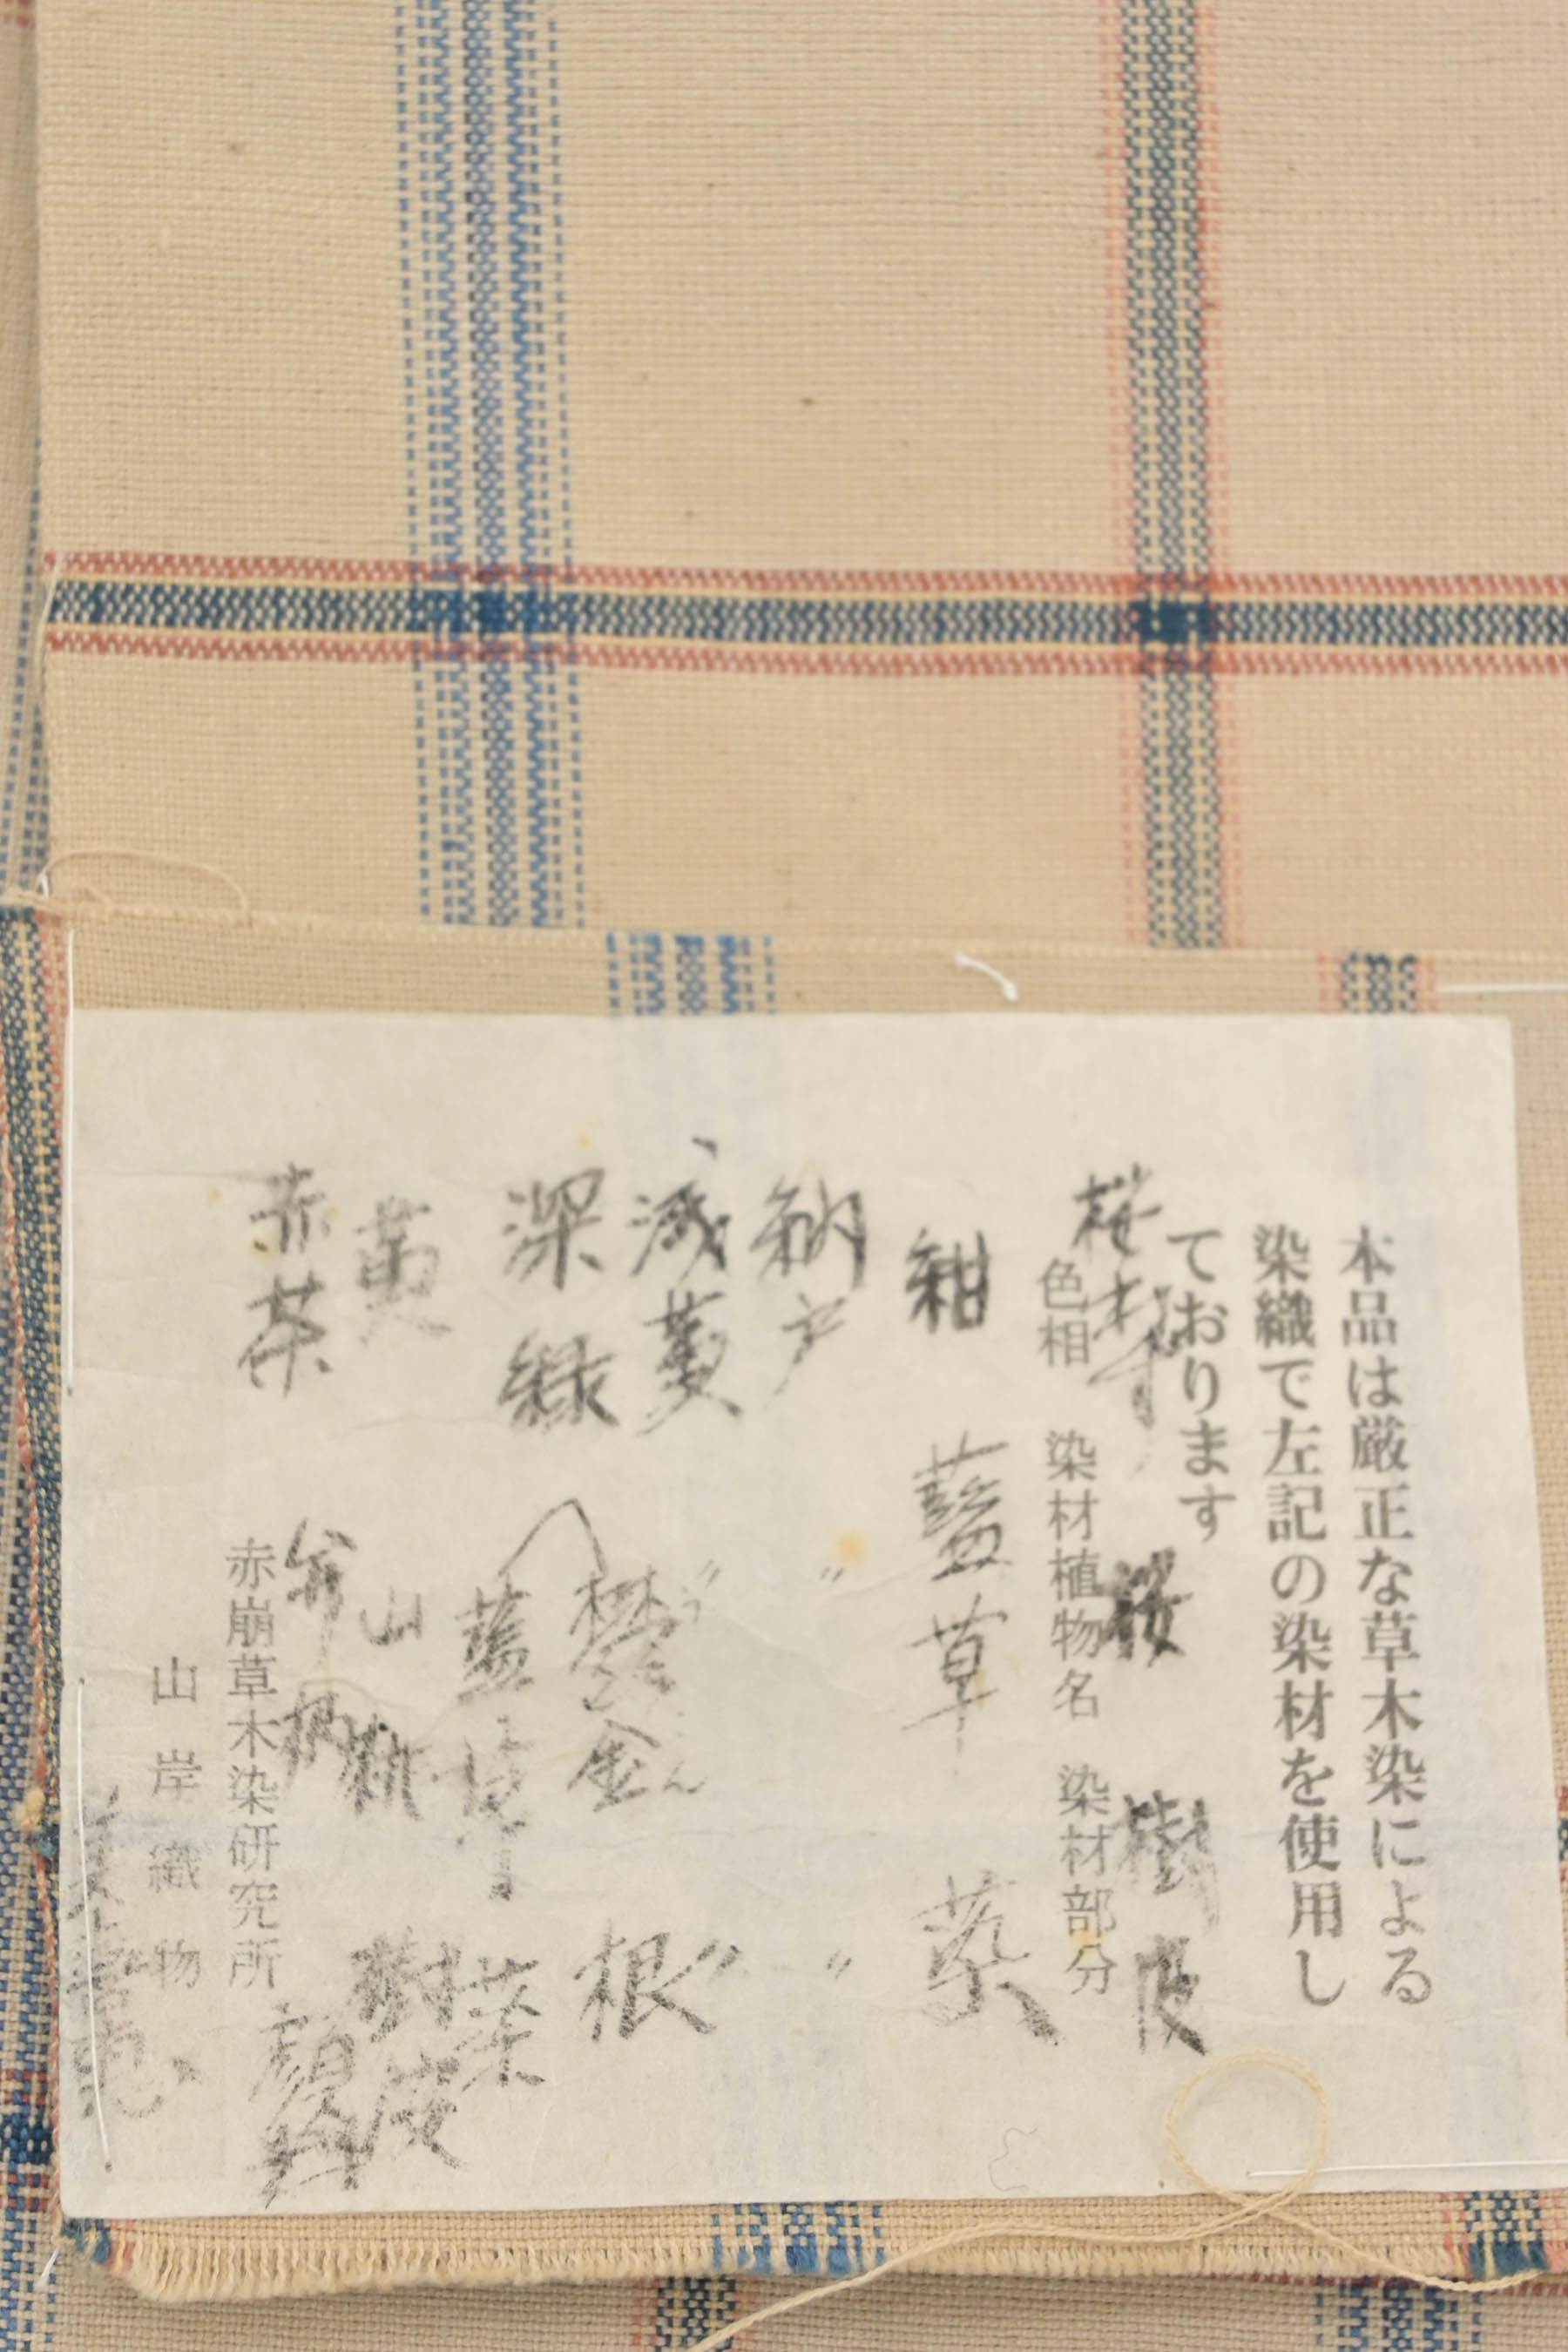 本品は厳正な草木染による
染織で左記の染材を使用し
ております
桜 樹皮
色相 染材植物名 染材部分
紺 藍草 葉
納戸 〃 〃
浅黄 〃 〃
深緑 欝金 根
藍草 葉
黄 山桃 樹皮
赤茶 弁柄 顔料
赤崩草木染研究所
山岸織物